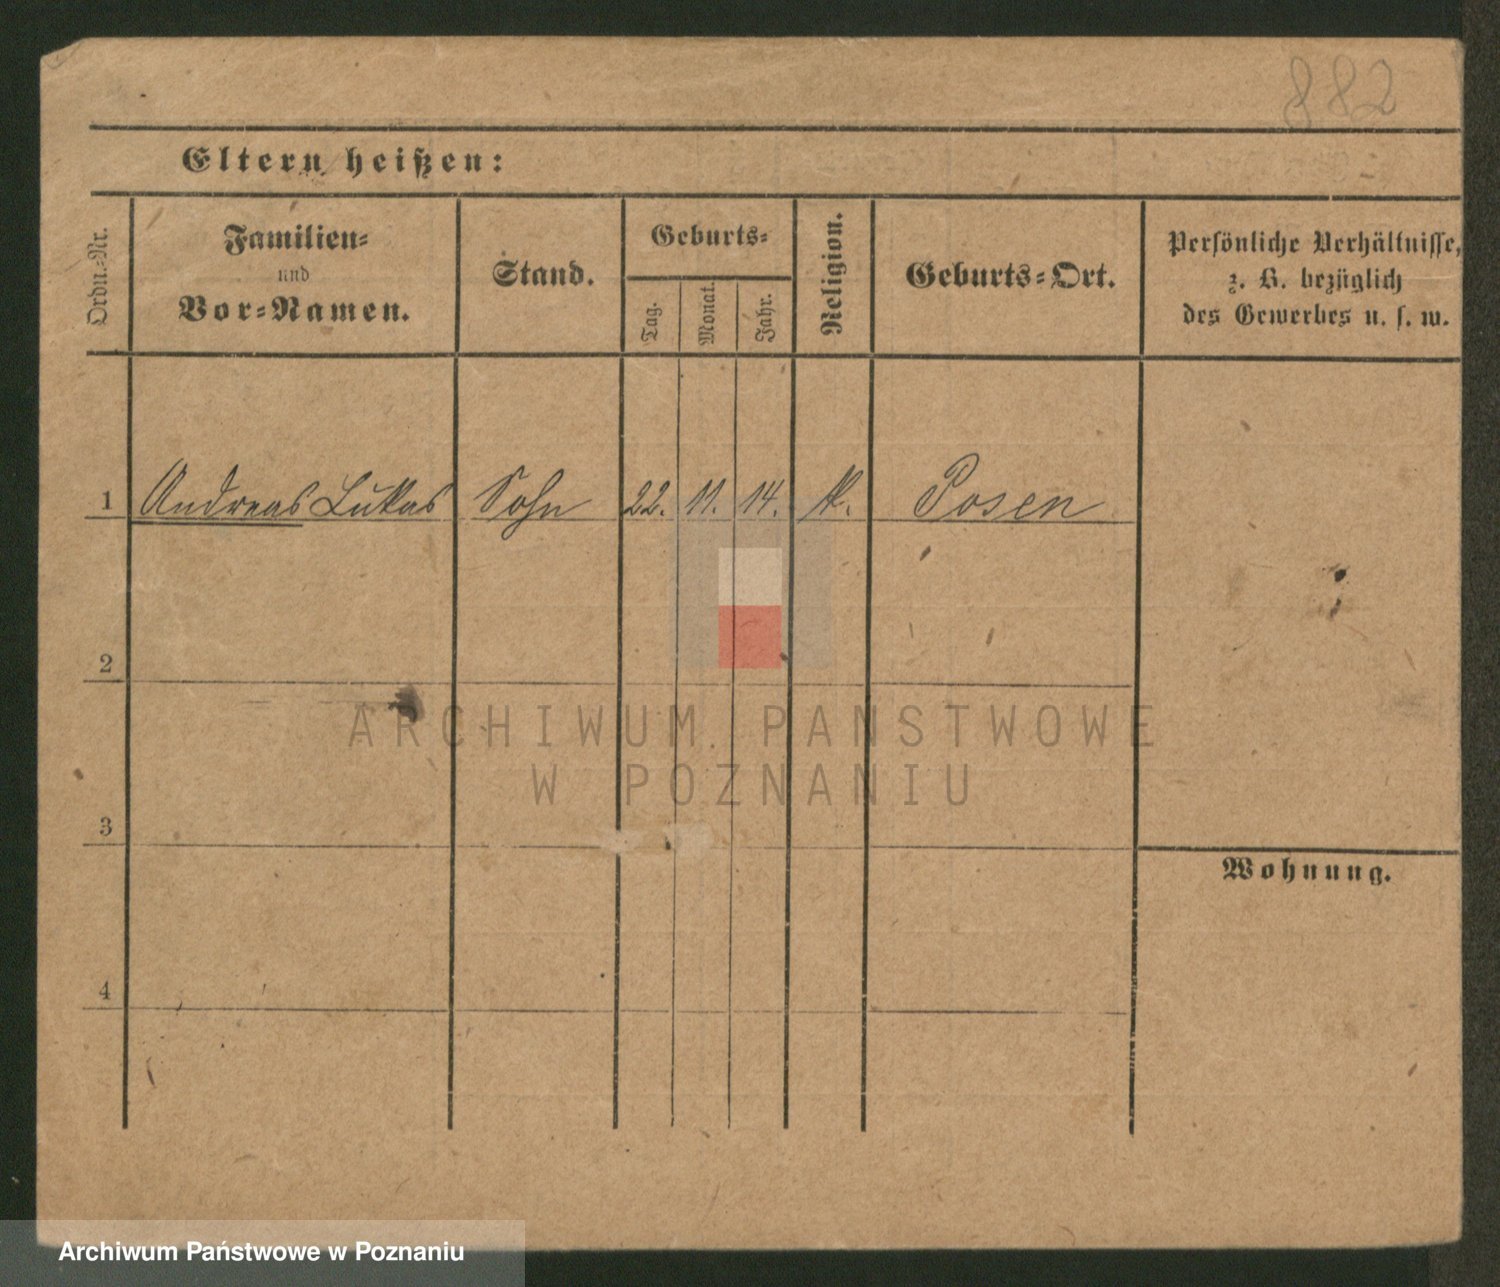 882
Eltern heißen:
Ordn.-Nr.
Familien-
und
Vor-Namen.
Stand.
Geburts-
Tag.
Monat.
Jahr.
Religion.
Geburts-Ort.
Persönliche Verhältnisse,
z. B. bezüglich
des Gewerbes u. s. w.
1 Andreas Lukas Sohn 22. 11. 14. k. Posen
2
ARCHIWUM PAŃSTWOWE
W POZNANIU
3
Wohnung.
4
Archiwum Państwowe w Poznaniu